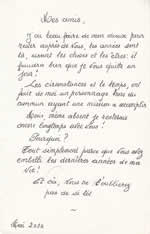 Mes amis,
J'ai beau faire de mon mieux pour
rester auprès de vous, les années sont
là, usent les choses et les êtres : il
faudra bien que je vous quitte un
jour !
Les circonstances et le temps, ont
fait de moi un personnage hors du
commun ayant une mission à accomplir
Mais, même absent je resterai
encore longtemps avec vous !
Pourquoi ?
Tout simplement parce que vous avez
embelli les dernières années de ma
Vie !
Et ça, vous ne l'oublierez
pas de si tôt
Mai 2